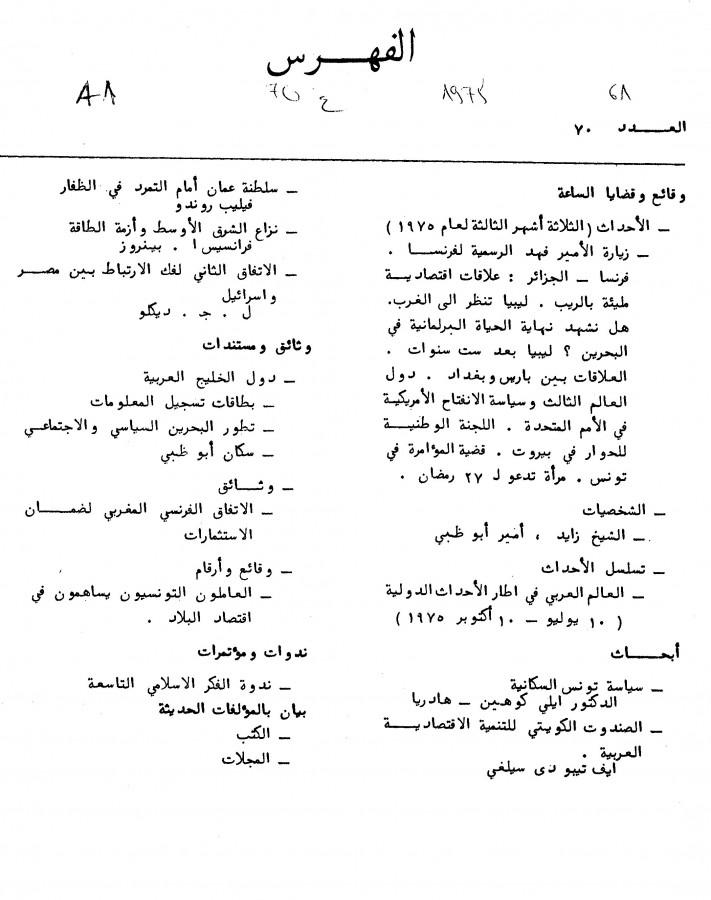 الفهرس
A1 70 ع 1975 61
العدد ٧٠
وقائع وقضايا الساعة
ـ الأحداث (الثلاثة أشهر الثالثة لعام ١٩٧٥)
ـ زيارة الأمير فهد الرسمية لفرنسا .
فرنسا ـ الجزائر : علاقات اقتصادية
مليئة بالريب . ليبيا تنظر الى الغرب.
هل نشهد نهاية الحياة البرلمانية في
البحرين ؟ ليبيا بعد ست سنوات .
العلاقات بين باريس وبغداد . دول
العالم الثالث وسياسة الانفتاح الأمريكية
في الأمم المتحدة . اللجنة الوطنية
للحوار في بيروت . قضية المؤامرة في
تونس . مرأة تدعو لـ ٢٧ رمضان .
ـ الشخصيات
ـ الشيخ زايد ، أمير أبو ظبي
ـ تسلسل الأحداث
ـ العالم العربي في اطار الأحداث الدولية
( ١٠ يوليو ـ ١٠ أكتوبر ١٩٧٥ )
أبحاث
ـ سياسة تونس السكانية
الدكتور ايلي كوهين ـ هادريا
ـ الصندوت الكويتي للتنمية الاقتصادية
العربية .
ايف تيبو دى سيلغي
ـ سلطنة عمان أمام التمرد في الظفار
فيليب روندو
ـ نزاع الشرق الأوسط وأزمة الطاقة
فرانسيس ا . بينروز
ـ الاتفاق الثاني لفك الارتباط بين مصر
واسرائيل
ل . ج . ديكلو
وثائق ومستندات
ـ دول الخليج العربية
ـ بطاقات تسجيل المعلومات
ـ تطور البحرين السياسي والاجتماعي
ـ سكان أبو ظبي
ـ وثائق
ـ الاتفاق الفرنسي المغربي لضمان
الاستثمارات
ـ وقائع وأرقام
ـ العاملون التونسيون يساهمون في
اقتصاد البلاد .
ندوات ومؤتمرات
ـ ندوة الفكر الاسلامي التاسعة
بيان بالمؤلفات الحديثة
ـ الكتب
ـ المجلات